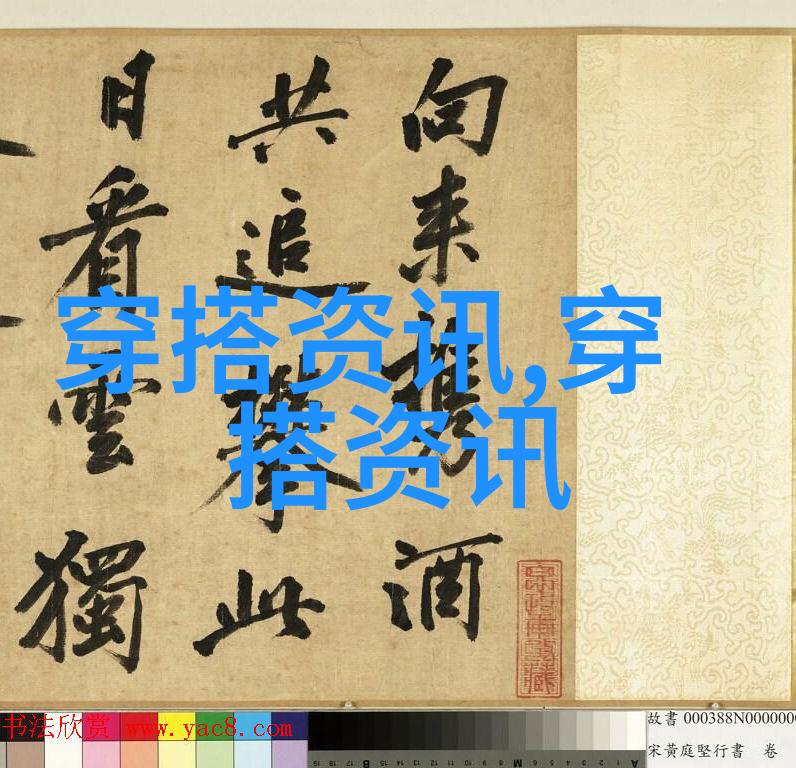 向来携酒
共追攀此
日看雲獨
穿搭资讯,穿
搭资讯
书法欣赏 www.yac8.com
故書 000388N0000000
宋黃庭堅行書 卷